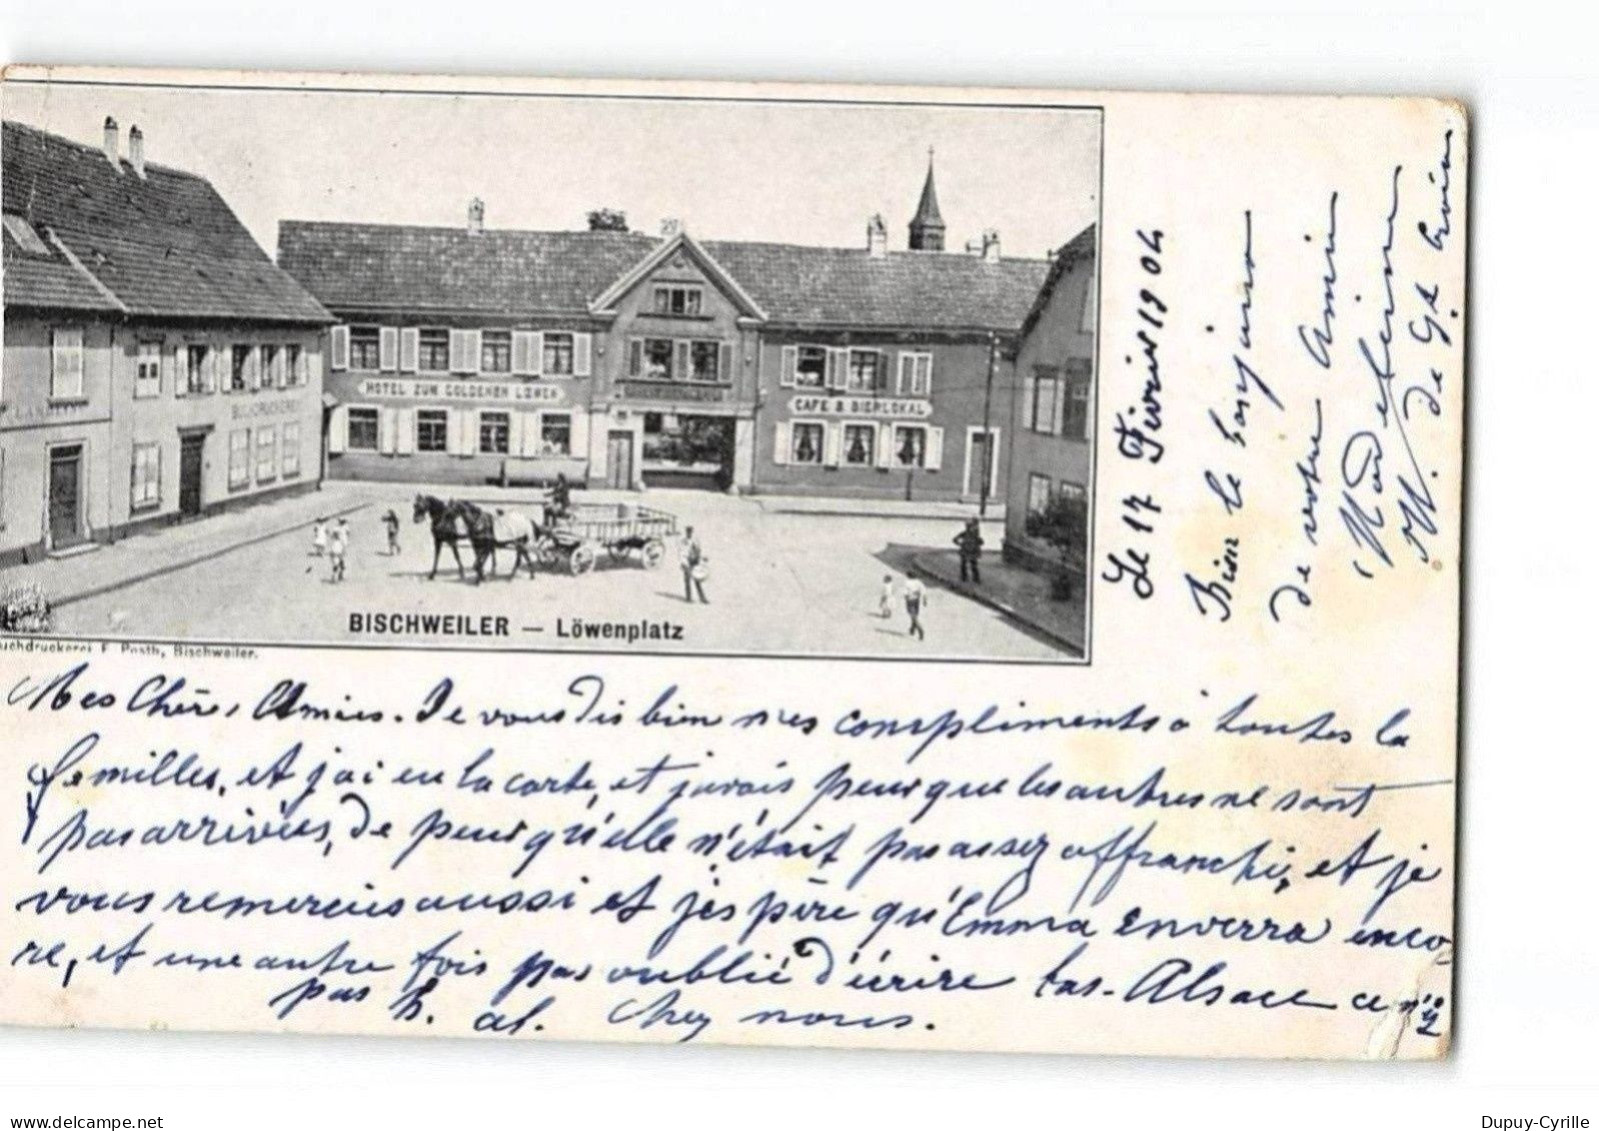 HOTEL ZUM GOLDENEN LÖWEN
CAFE & BIERLOKAL
BUCHDRUCKEREI
BISCHWEILER — Löwenplatz
uchdruckerei F. Posth, Bischweiler.
Le 17 Févris 1904
Bien le bonjuro
de vortre Amie
Madeleine
M. de
Mes Chère, Amies. Je vous dis bien mes compliments à toutes la
femilles, et j'ai eu la carte, et javais peur que les autres ne sont
pas arrivées, de peur qu'elle n'était pas assez affranchi, et je
vous remercies aussi et j'éspère qu'Emma enverra enco
re, et une autre fois pas oublié d'écrire bas-Alsace ce n'
pas h. al. Chez nous.
Dupuy-Cyrille
www.delcampe.net